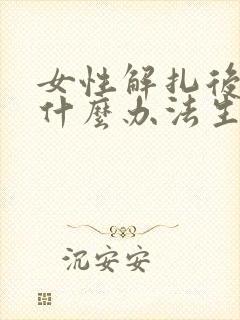 女性解扎後
什麼办法生
沉安安